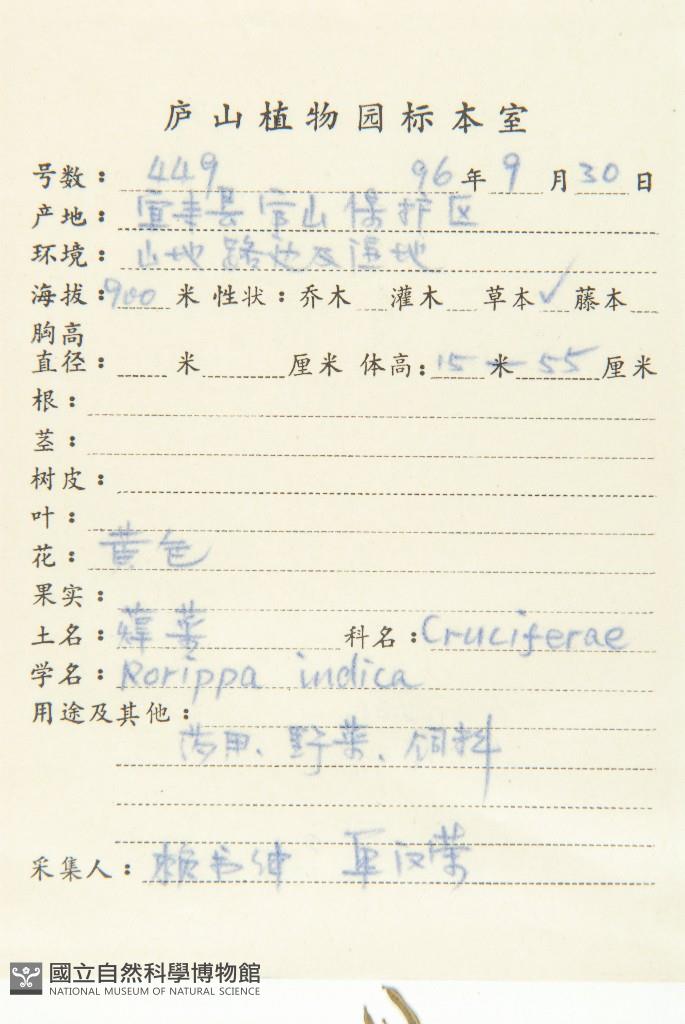 庐山植物园标本室
号数： 449 96 年 9 月 30 日
产地： 宜丰县官山保护区
环境： 山地路边及湿地
海拔： 900 米 性状：乔木 灌木 草本 ✓ 藤本
胸高
直径： 米 厘米 体高： 15 — 55 厘米
根：
茎：
树皮：
叶：
花： 黄色
果实：
土名： 蔊菜 科名： Cruciferae
学名： Rorippa indica
用途及其他：
药用、野菜、饲料
采集人： 赖书绅
國立自然科學博物館
NATIONAL MUSEUM OF NATURAL SCIENCE